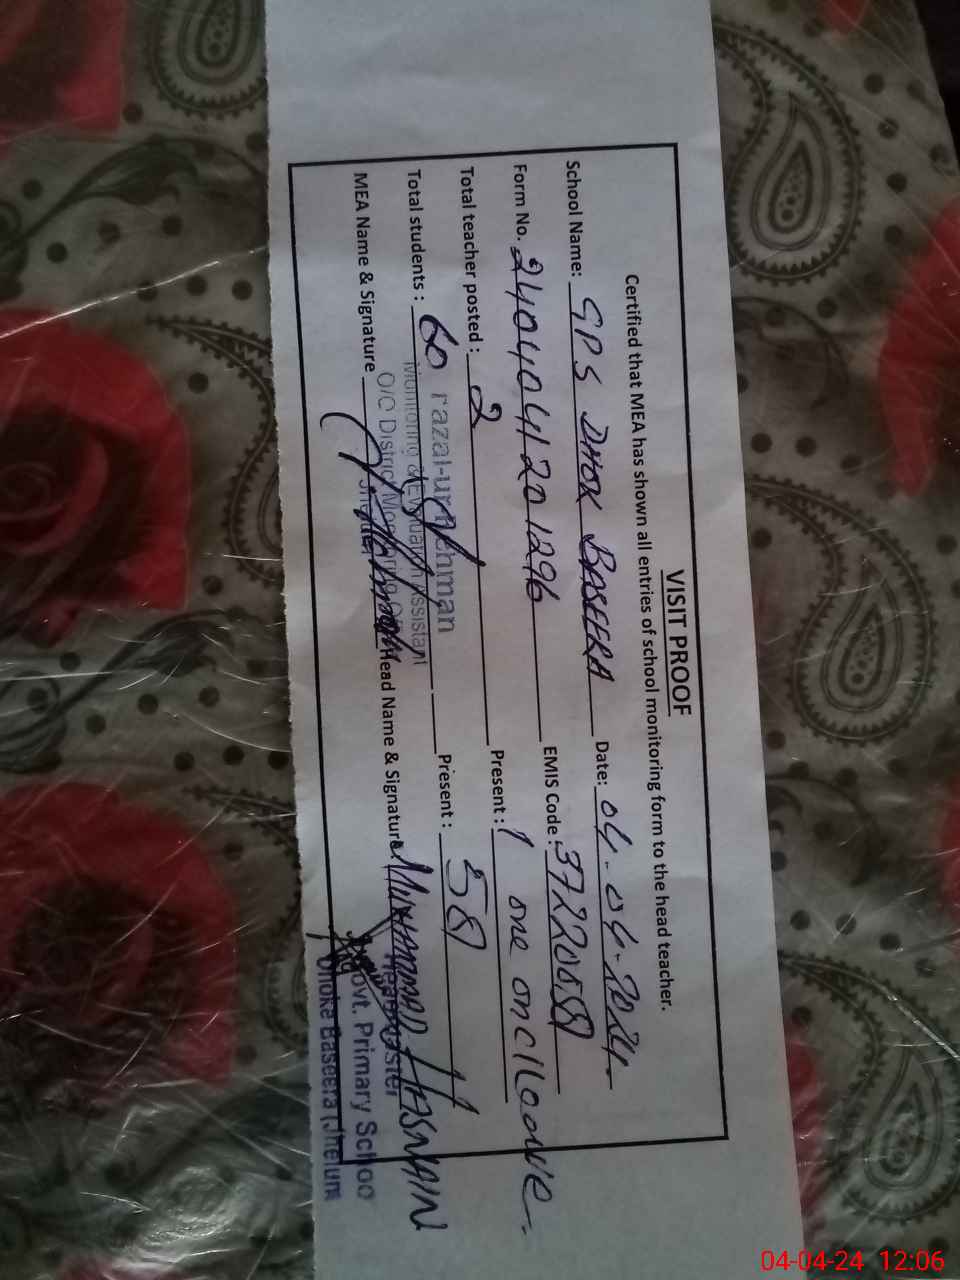 VISIT PROOF
Certified that MEA has shown all entries of school monitoring form to the head teacher.
School Name: GPS DHOK BASEERA Date: 04-04-2024
Form No. 2404041201296 EMIS Code: 37220
Total teacher posted: 2 Present: 1 one on c/leave
Total students: 60 Present: 58
razal-ur-rehman
Monitoring & Evaluation Assistant
O/O District Monitoring
MEA Name & Signature Head Name & Signature MUHAMMAD HASNAIN
Headmaster
Govt. Primary Schoo
Dhoke Baseera (Jhelum
04-04-24 12:06